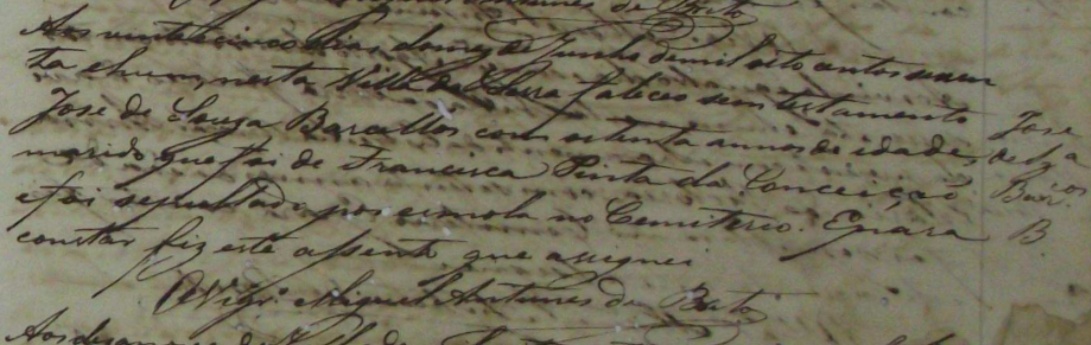 Antunes de Brito
Aos vinte cinco dias domez de Junho demil oito centos sessen
ta ehum, nesta Villa da Serra faleceo sem testamento
Jose de Souza Barcellos com oitenta annos de idade, Jose
marido que foi de Francisca Pinta da Conceição de Sza
e foi sepultado por esmola no Cemiterio. Epara B
constar fiz este assento que assignei
OVigr.º Miguel Antunes de Brito
Aos